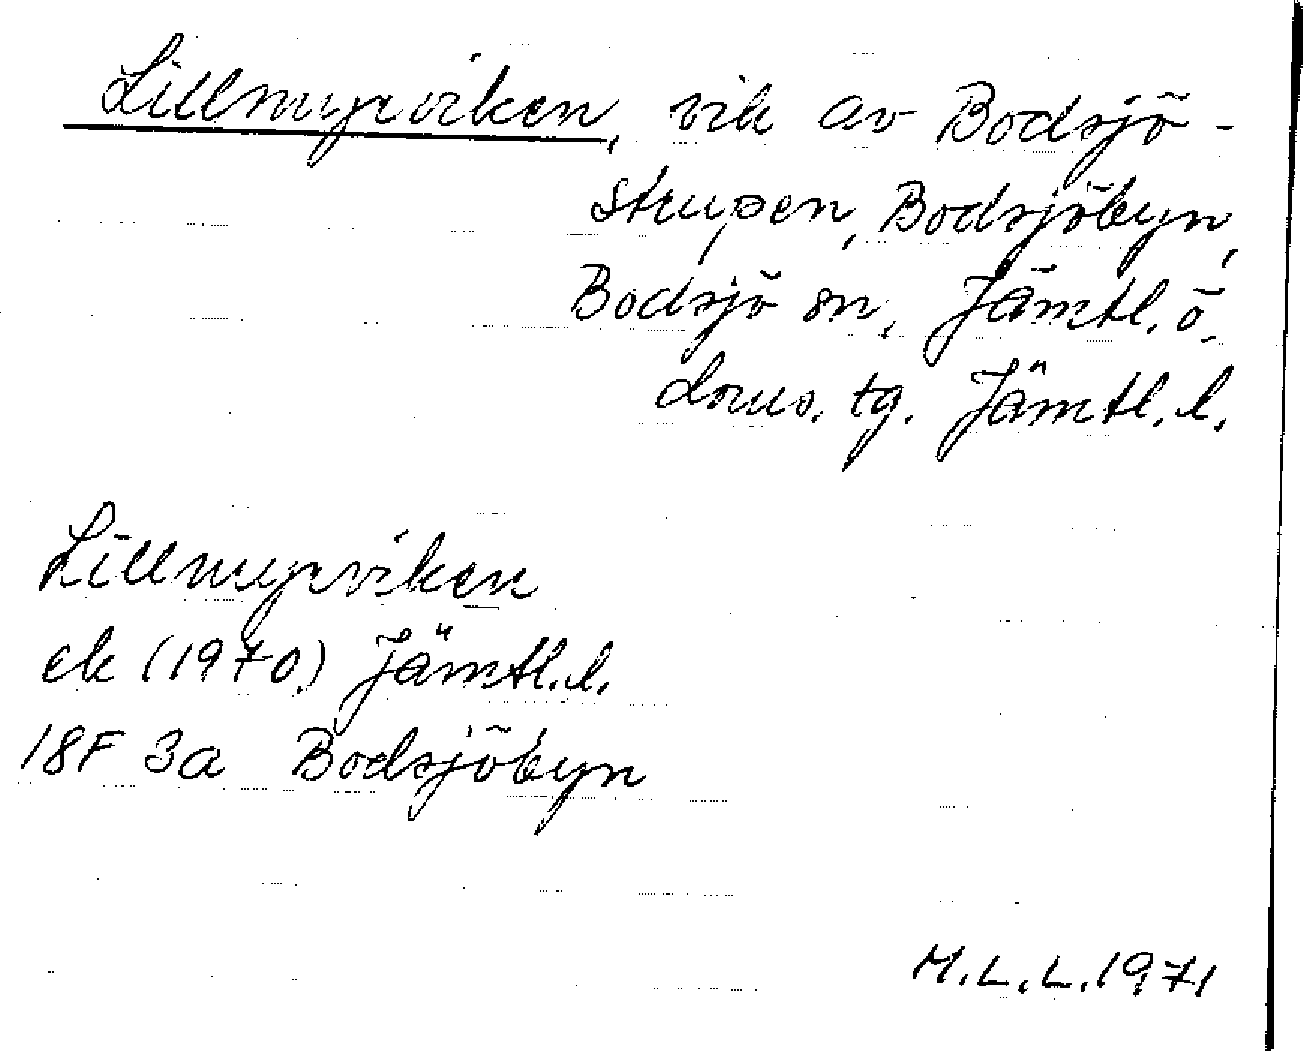 Lillmyrviken, vik av Bodsjö-
strupen, Bodsjöbyn,
Bodsjö sn, Jämtl. ö.
doms. tg. Jämtl. l.
Lillmyrviken
ek (1970) Jämtl. l.
18F 3a Bodsjöbyn
M.L.L. 1971